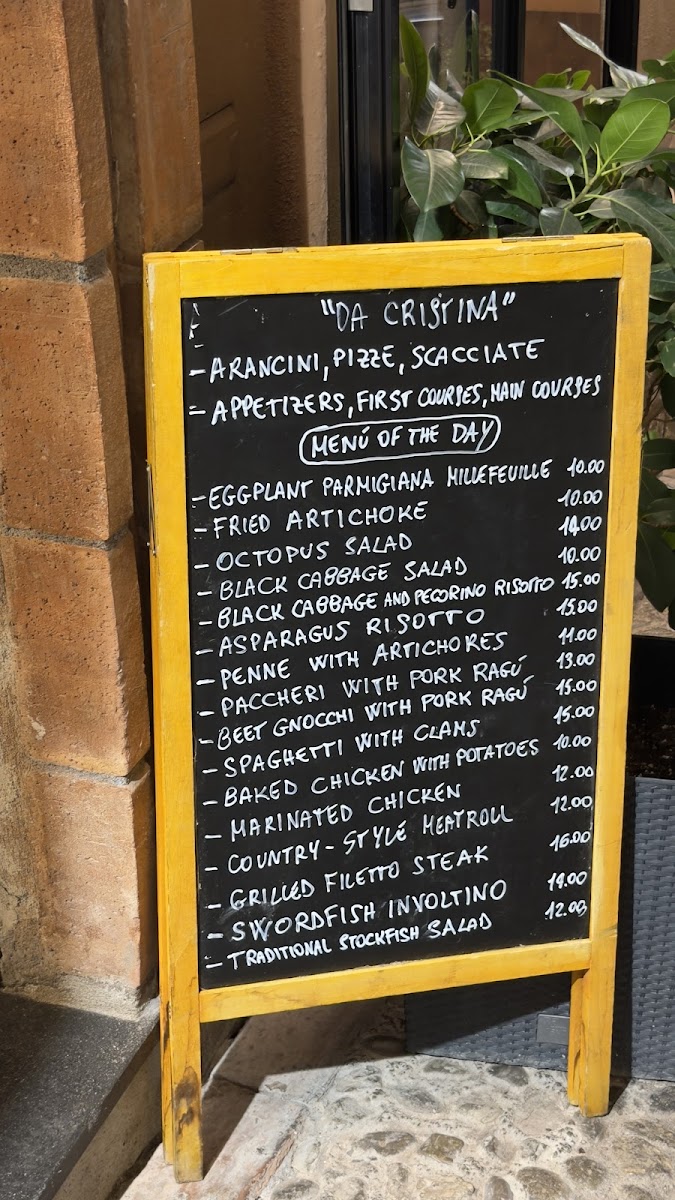 "DA CRISTINA"
- ARANCINI, PIZZE, SCACCIATE
- APPETIZERS, FIRST COURSES, MAIN COURSES
MENÚ OF THE DAY
- EGGPLANT PARMIGIANA MILLEFEUILLE 10.00
- FRIED ARTICHOKE 10.00
- OCTOPUS SALAD 14.00
- BLACK CABBAGE SALAD 10.00
- BLACK CABBAGE AND PECORINO RISOTTO 15.00
- ASPARAGUS RISOTTO 15.00
- PENNE WITH ARTICHOKES 11.00
- PACCHERI WITH PORK RAGÚ 13.00
- BEET GNOCCHI WITH PORK RAGÚ 15.00
- SPAGHETTI WITH CLAMS 15.00
- BAKED CHICKEN WITH POTATOES 10.00
- MARINATED CHICKEN 12.00
- COUNTRY-STYLE MEATROLL 12.00
- GRILLED FILETTO STEAK 16.00
- SWORDFISH INVOLTINO 14.00
- TRADITIONAL STOCKFISH SALAD 12.00